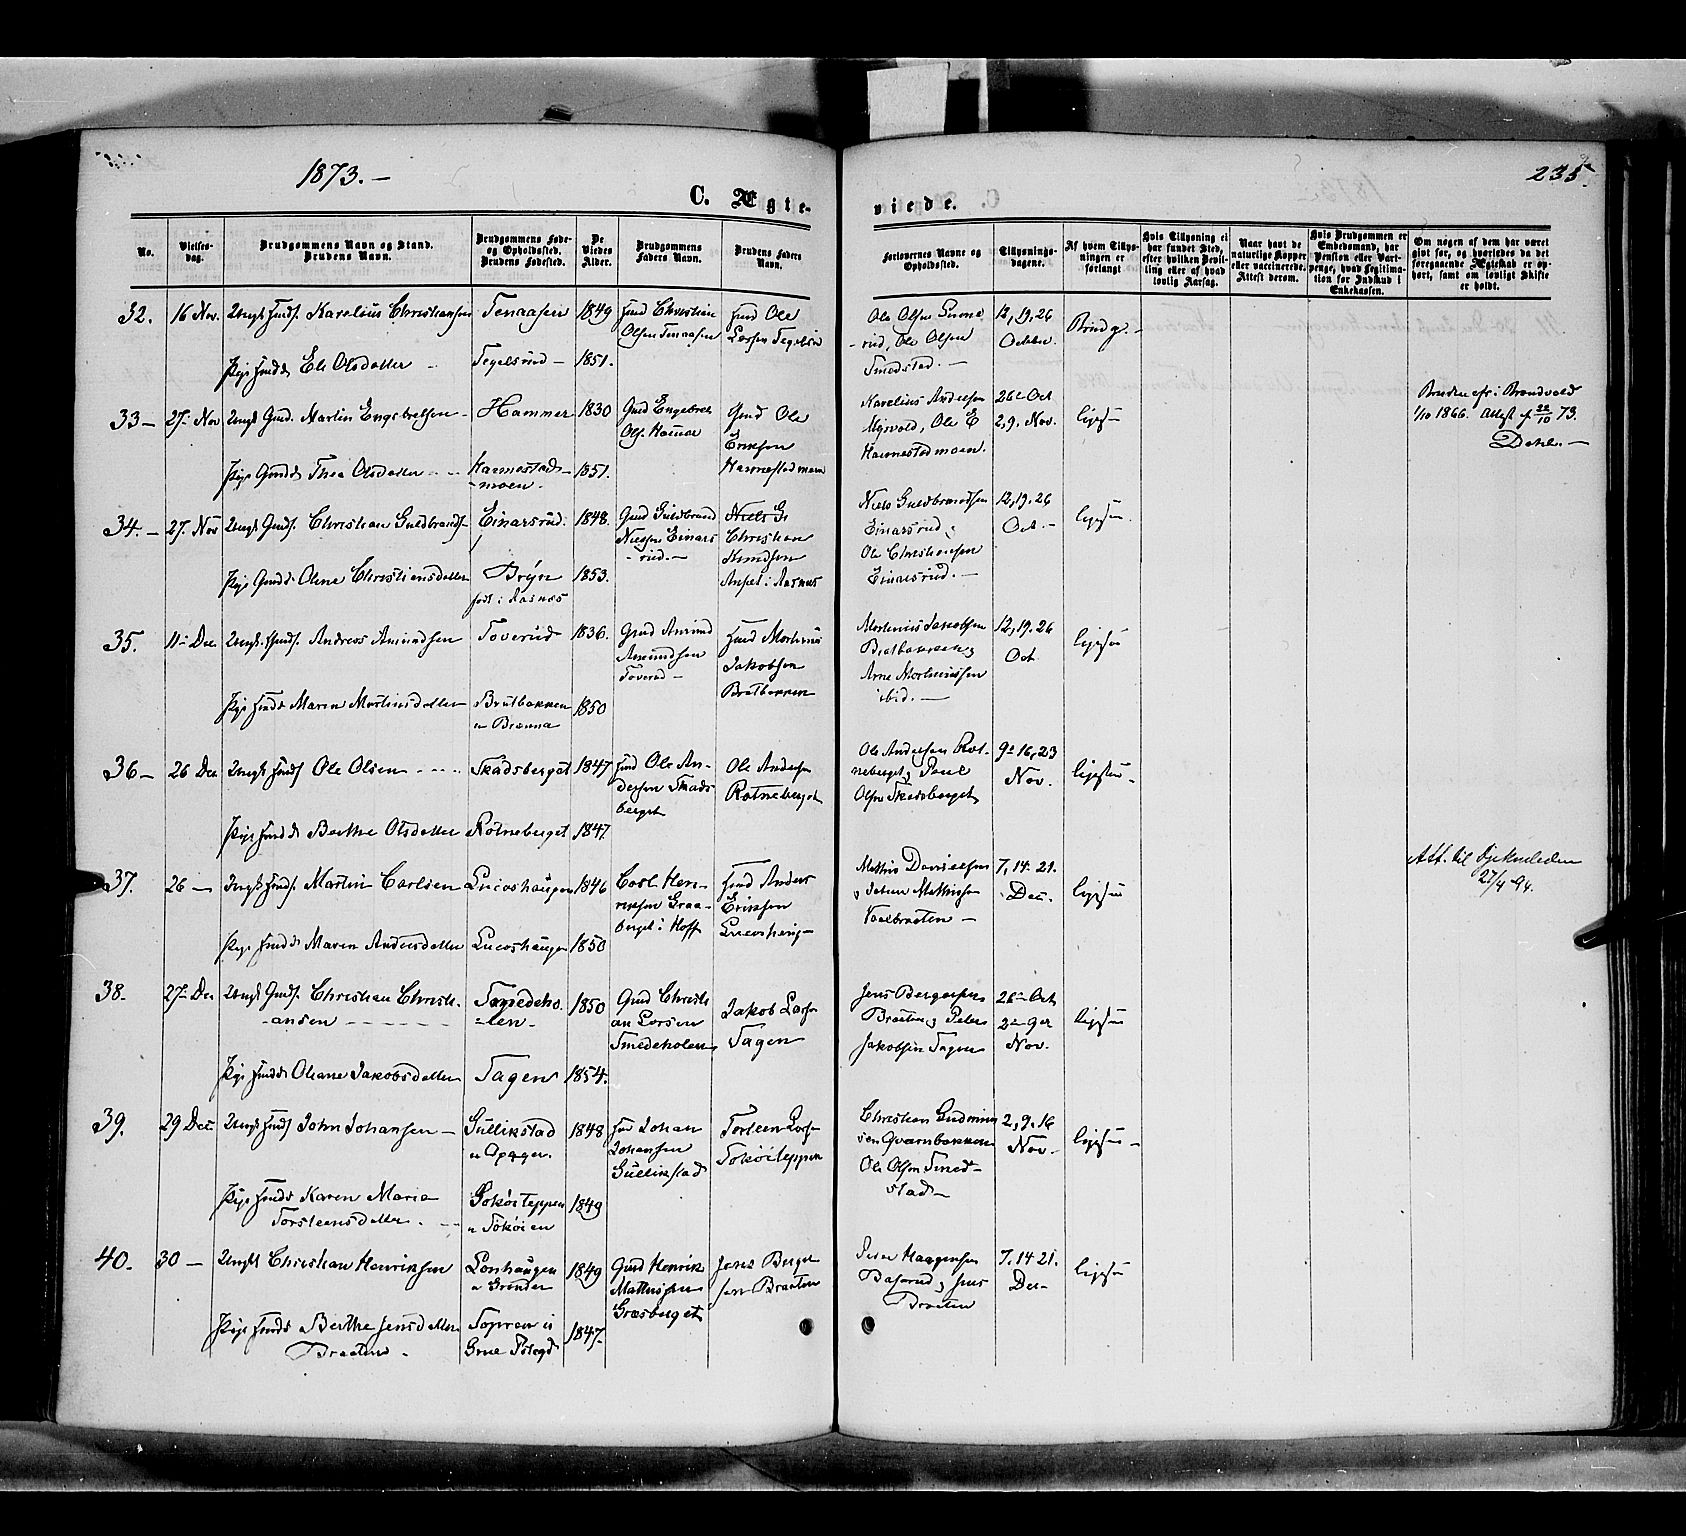 1873.-
235
C. Ægte-
viede.
No.
Vielses-
dag.
Brudgommens Navn og Stand.
Brudens Navn.
Brudgommens Føde-
og Opholdssted.
Brudens Fødested.
De
Viedes
Alder.
Brudgommens
Faders Navn.
Brudens Faders
Navn.
Forlovernes Navne og
Opholdssted.
Tillysnings-
dagene.
Af hvem Tillys-
ningen er
forlangt
Hvis Tillysning ei
har fundet Sted,
efter hvilken Bevil-
ling eller af hvad
lovlig Aarsag.
Naar havt de
naturlige Kopper
eller vaccinerede.
Attest derom.
Hvis Brudgommen er
Embedsmand, har
Pension eller Vart-
penge, hvad Legitima-
tion for Indskud i
Enkekassen.
Om nogen af dem har været
gift før, og hvorledes da det
foregaaende Ægteskab er op-
hørt, samt om lovligt Skifte
er holdt.
32. 16 Nov. Ungk Huds. Karelius Christiansen Tenaasen 1849 Husd Christian
Olsen Tenaasen
Husd Ole
Larsen Tegelsrud
Ole Olsen
rud, Ole Olsen
Smedstad.-
12, 19, 26
Octbr.
Brudg.-
Pige Husdd Eli Olsdatter Tegelsrud - 1851.
33- 27. Nov Ungk Gmd. Martin Engebretsen - Hammer 1830 Gmd Engebret
Ols. Hamar
Gmd Ole
Eriksen
Harmestadmoen
Karelius Andersen
Ole E
Harmestadmoen.
26 Oct
2, 9. Nov.
ligesu
Bruden efr: i Brandvold
1/10 1866. Attest f 22/10 73.
Dahl.-
Pige Gmdd Thea Olsdatter - - Harmestads-
-moen. 1851.
34.- 27. Nov Ungk Gmds. Christian Guldbrands- Einarsrud. 1848. Gmd Guldbrand
Nielsen Einars
- rud.-
Niels G
Christian
Knudsen
i Aasnes
Niels Guldbrandsen
Einarsrud,
Ole Christiansen
Einarsrud.-
12, 19. 26
Oct.-
ligesu.
Pige Gmdd. Oline Christiansdatter Brÿn
født i Aasnæs 1853.
35. 11- Dec Ungk. Husds. Andreas Amundsen Toverud 1836. Gmd Amund
Amundsen
Toverud-
Husd Martinius
Jakobsen
Bratbakken
Martinius Jakobsen
Bratbakken,
Arne Martiniussen
ibid.-
12, 19. 26
Oct
ligesu
Pige Husds Maren Martinsdatter Bratbakken
u Brænna 1850
36- 26 Dec Ungk Husds Ole Olsen - - - - Skadsberget 1847 Husd Ole An-
dersen Skads
berget
Ole Andersen
Rotneberget
Ole Andersen Rot-
neberget, Paul
Olsen Skadsberget,
9- 16, 23
Nov.
ligesu.
Pige Husdd Berthe Olsdatter Rotneberget 1847.
37. 26 - Ungk Husds. Martin Carlsen Lucashaugen 1846 Carl Hen-
riksen Graa-
berget i Hoff
Husd Anders
Eriksen
Mathias Danielsen
, Johan Mathisen
Vaalbraaten -
7, 14. 21.
Dec.
ligesu
Att. til
27/4 94.
Pige Husdd Maren Andersdatter Lucashaugen 1850
38. 27- Dec Ungk Gmds. Christian Christi-
-ansen - - - - - Smedeho-
-len- 1850 Gmd Christi
an Larsen
Smedeholen
Jakob Larsen
Tagen
Jens Bergersen
Braaten, Peter
Jakobsen Tagen
26- Oct,
2- 9de
Nov.
ligesu
Pige Husdd Oliane Jakobsdatter Tagen 1854.
39. 29 Dec Ungk Husds John Johansen - Gullikstad
u Opager. 1848 Hus Johan
Johansen
Gullikstad
Torsten Larsen
Tokøiteppen
Christian Gudmun
sen Qvarnbakken
Ole Olsen Smed-
stad-
2, 9. 16
Nov.
ligesu-
Pige Husds Karen Marie
Torsteensdatter. - Tokøiteppen
u Tokøien 1849
40. 30 - Ungkl Christian Henriksen Lonhaugen
u Grinder 1849 Gmd Henrik
Mathisen
Græsberget
Jens Berger
sen Braaten
Peter Haagensen
Basrud, Jens
Braaten
7, 14 21.
Dec-
ligesu
Pige Husds Berthe Jensdatter
Braaten - Toprau i
Grue Pstgd 1847.